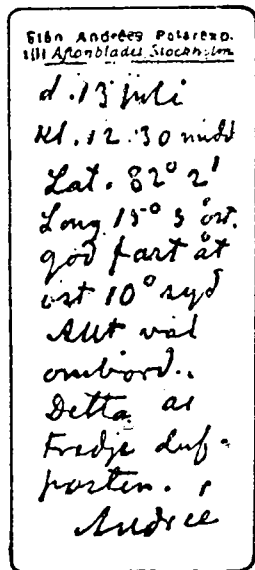 från Andrées Polarexp.
till Aftonbladet, Stockholm
d. 13 juli
kl. 12.30 midd
Lat. 82° 2'
Long 15° 5' öst.
god fart åt
ost 10° syd
Allt väl
ombord.
Detta är
tredje duf-
posten.
Andrée